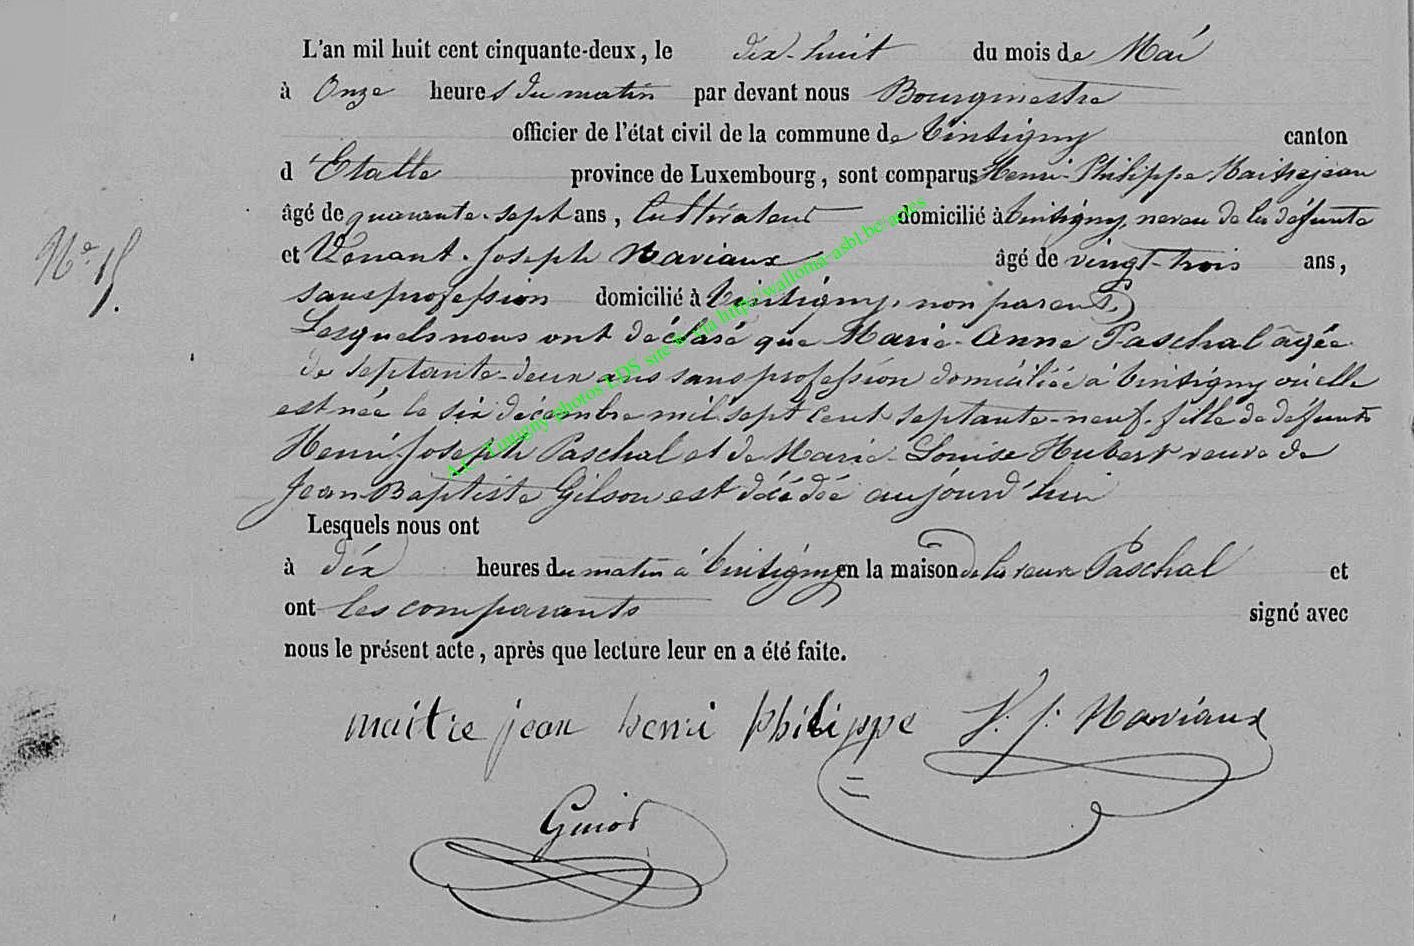 L'an mil huit cent cinquante-deux, le dix-huit du mois de Mai
à Onze heures du matin par devant nous Bourgmestre
officier de l'état civil de la commune de Tintigny canton
d'Etalle province de Luxembourg, sont comparus Henri-Philippe Maitrejean
âgé de quarante-sept ans, cultivateur domicilié à Tintigny, neveu de la défunte
N° 15.
et Venant-Joseph Naviaux âgé de vingt-trois ans,
sans profession domicilié à Tintigny, non parent.
Lesquels nous ont déclaré que Marie-Anne Paschal âgée
de septante-deux ans sans profession domiciliée à Tintigny où elle
est née le six décembre mil sept cent septante-neuf, fille de défunts
Henri-Joseph Paschal et de Marie-Louise Hubert veuve de
Jean-Baptiste Gilson est décédée aujourd'hui
Lesquels nous ont
à dix heures du matin à Tintigny en la maison de la veuve Paschal et
ont les comparants signé avec
nous le présent acte, après que lecture leur en a été faite.
maitre jean henri philippe V. J. Naviaux
Guiot
Tintigny photos EDS site & via http://wallonia-asbl.be/actes